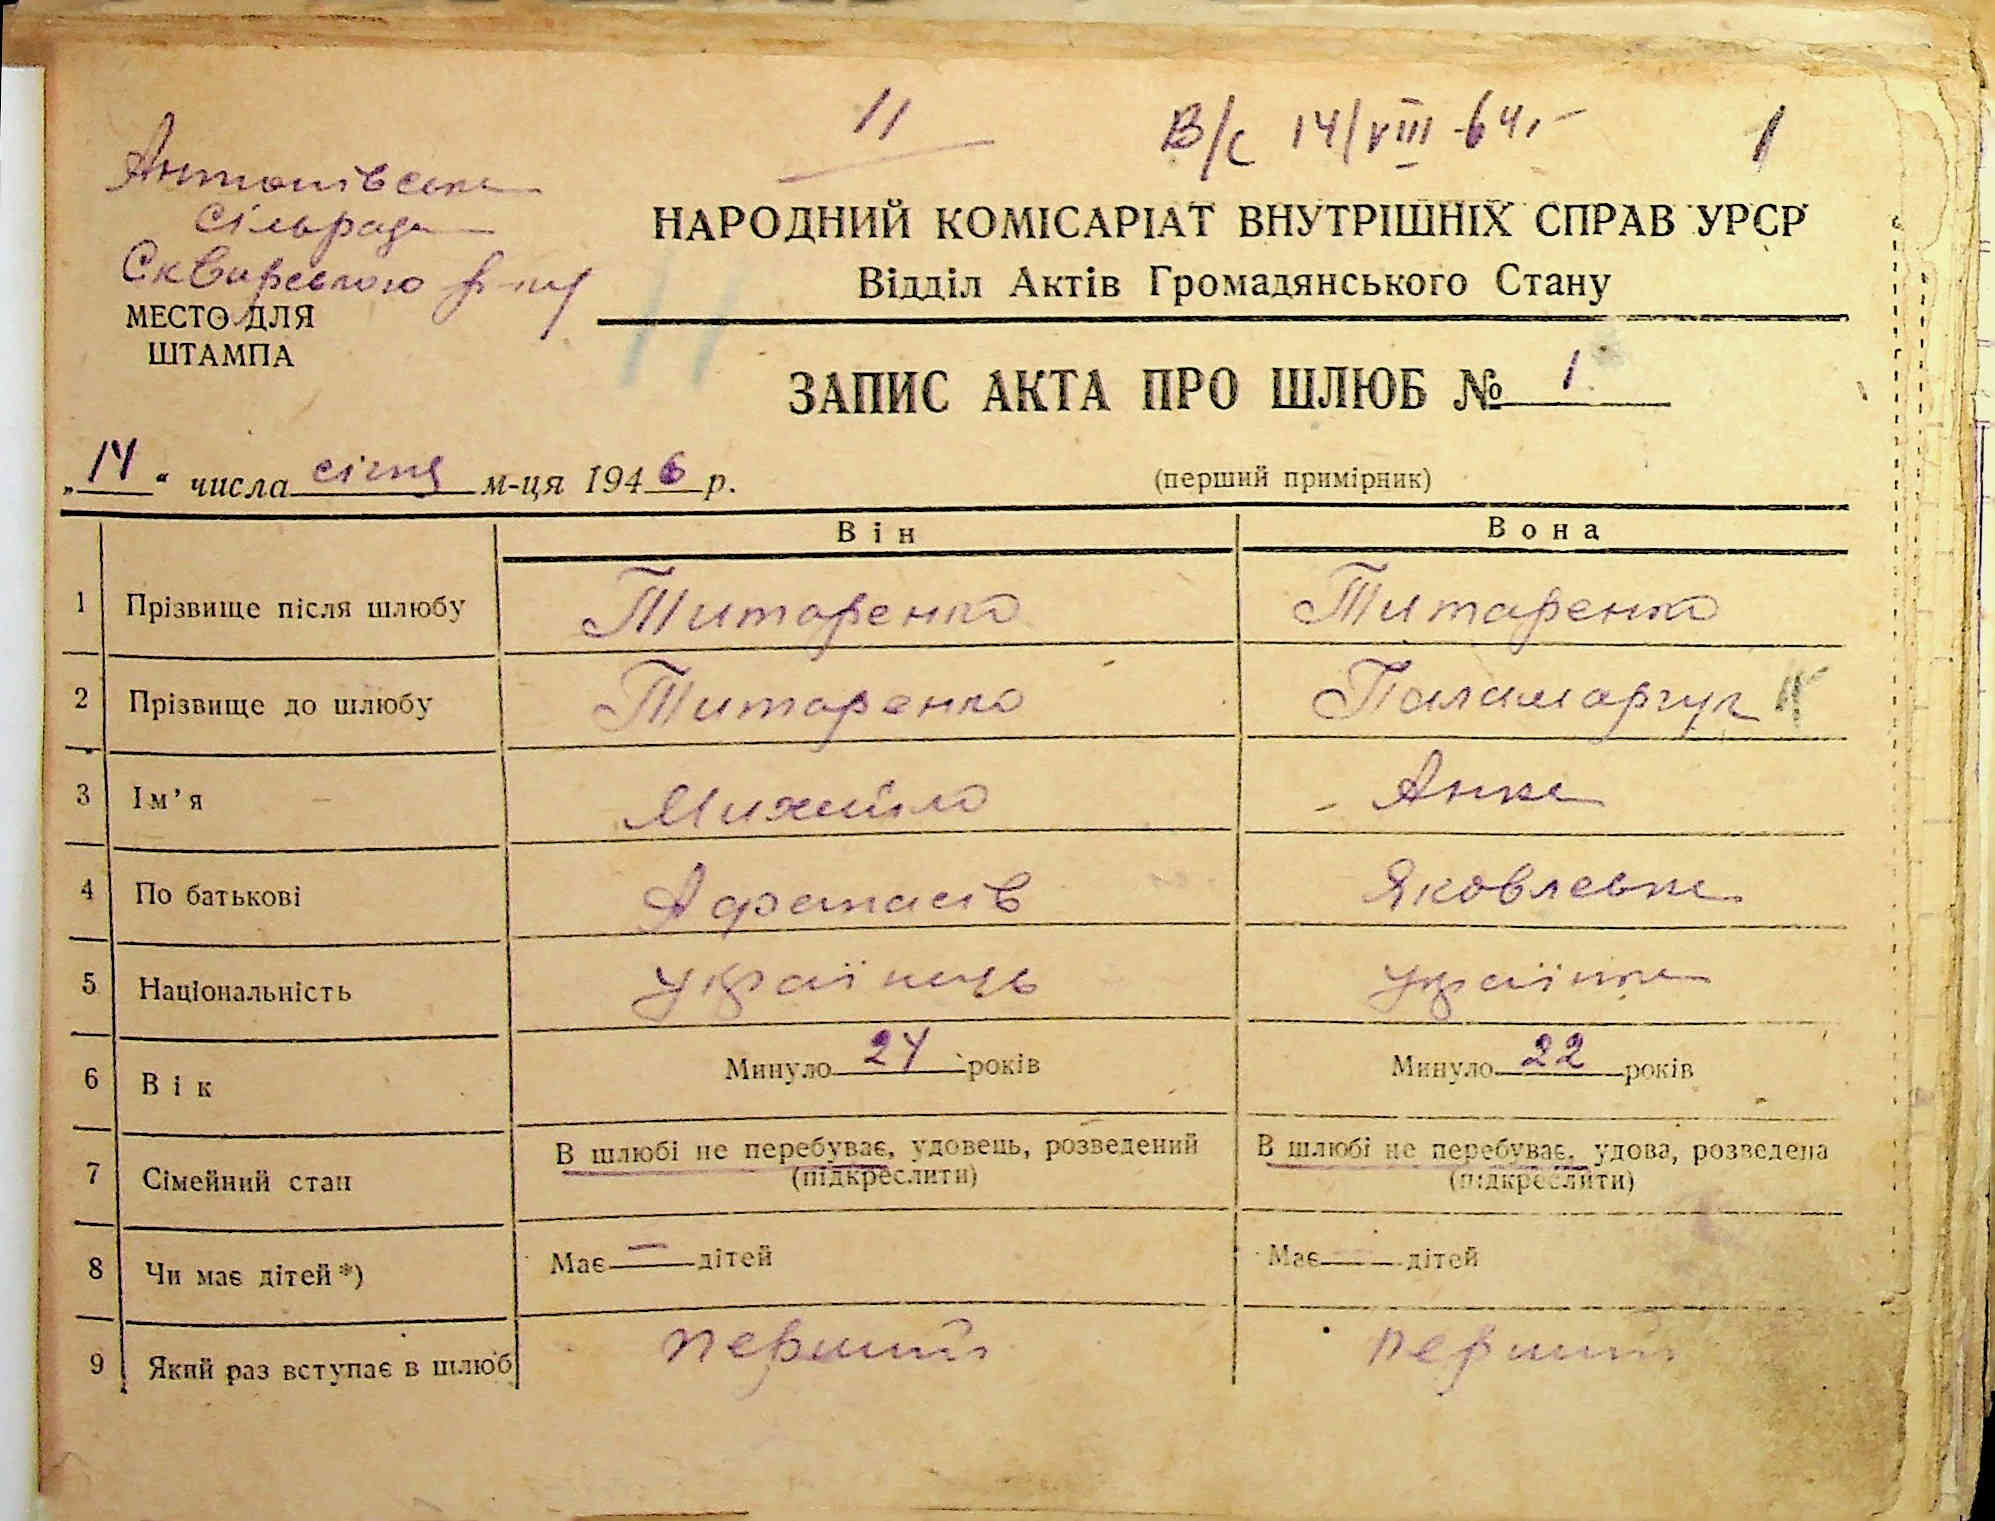 11
В/с 14/VIII-64 г.
1
Антонівська
сільрада
Сквирського р-ну
МЕСТО ДЛЯ
ШТАМПА
НАРОДНИЙ КОМІСАРІАТ ВНУТРІШНІХ СПРАВ УРСР
Відділ Актів Громадянського Стану
11
ЗАПИС АКТА ПРО ШЛЮБ № 1
„14“ числа січня м-ця 1946 р.
(перший примірник)
Він Вона
1 Прізвище після шлюбу Титаренко Титаренко
2 Прізвище до шлюбу Титаренко Паламарчук
3 Ім’я Михайло Анна
4 По батькові Афанасів Яковлевна
5 Національність українець українка
6 Вік Минуло 24 років Минуло 22 років
7 Сімейний стан В шлюбі не перебуває, удовець, розведений В шлюбі не перебуває, удова, розведена
(підкреслити) (підкреслити)
8 Чи має дітей*) Має — дітей Має — дітей
9 Який раз вступає в шлюб перший перший